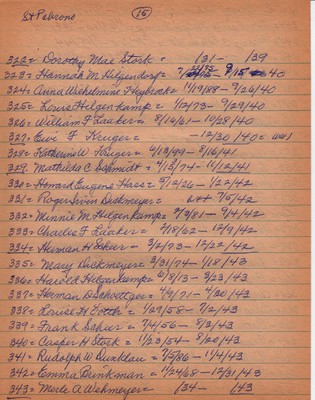 St Petrons (15)
322 = Dorothy Mae Stork = 1/31 - 1/39
323 = Hannah M. Hilgendorf = 7/ - 9/15 40
324 = Anna Wilhelmine Heybrok = 14/19/88 - 9/26/40
325 = Louis Hilgenkamp = 1/12/73 - 9/29/40
326 = William F Laaker = 8/16/61 - 10/28/40
327 = Evi F Kruger = - 12/30/40 =
328 = Katherine W Kruger = 6/13/99 - 8/16/41
329 = Mathilda C Schmidt = 4/15/74 - 11/12/41
330 = Howard Eugene Hass = 9/12/26 - 1/22/42
331 = Roger Diekmeyer = 7/5/42
332 = Minnie M. Hilgenkamp = 7/9/81 - 9/4/42
333 = Charlie F Laaker = 2/18/62 - 12/9/42
334 = Herman H Scheer = 3/2/73 - 12/22/42
335 = Mary Diekmeyer = 3/31/74 - 1/18/43
336 = Harold Hilgenkamp = 6/8/13 - 3/23/43
337 = Herman D Schoettger = 4/9/71 - 4/20/43
338 = Louise H Gottsch = 1/29/58 - 7/2/43
339 = Frank Scheer = 7/4/56 - 8/3/43
340 = Casper H Stork = 11/23/54 - 8/20/43
341 = Rudolph W Dunklau = 7/5/86 - 11/4/43
342 = Emma Brinkman = 11/24/68 - 12/31/43
343 = Merle A Wehmeyer = 1/34 - 1/43